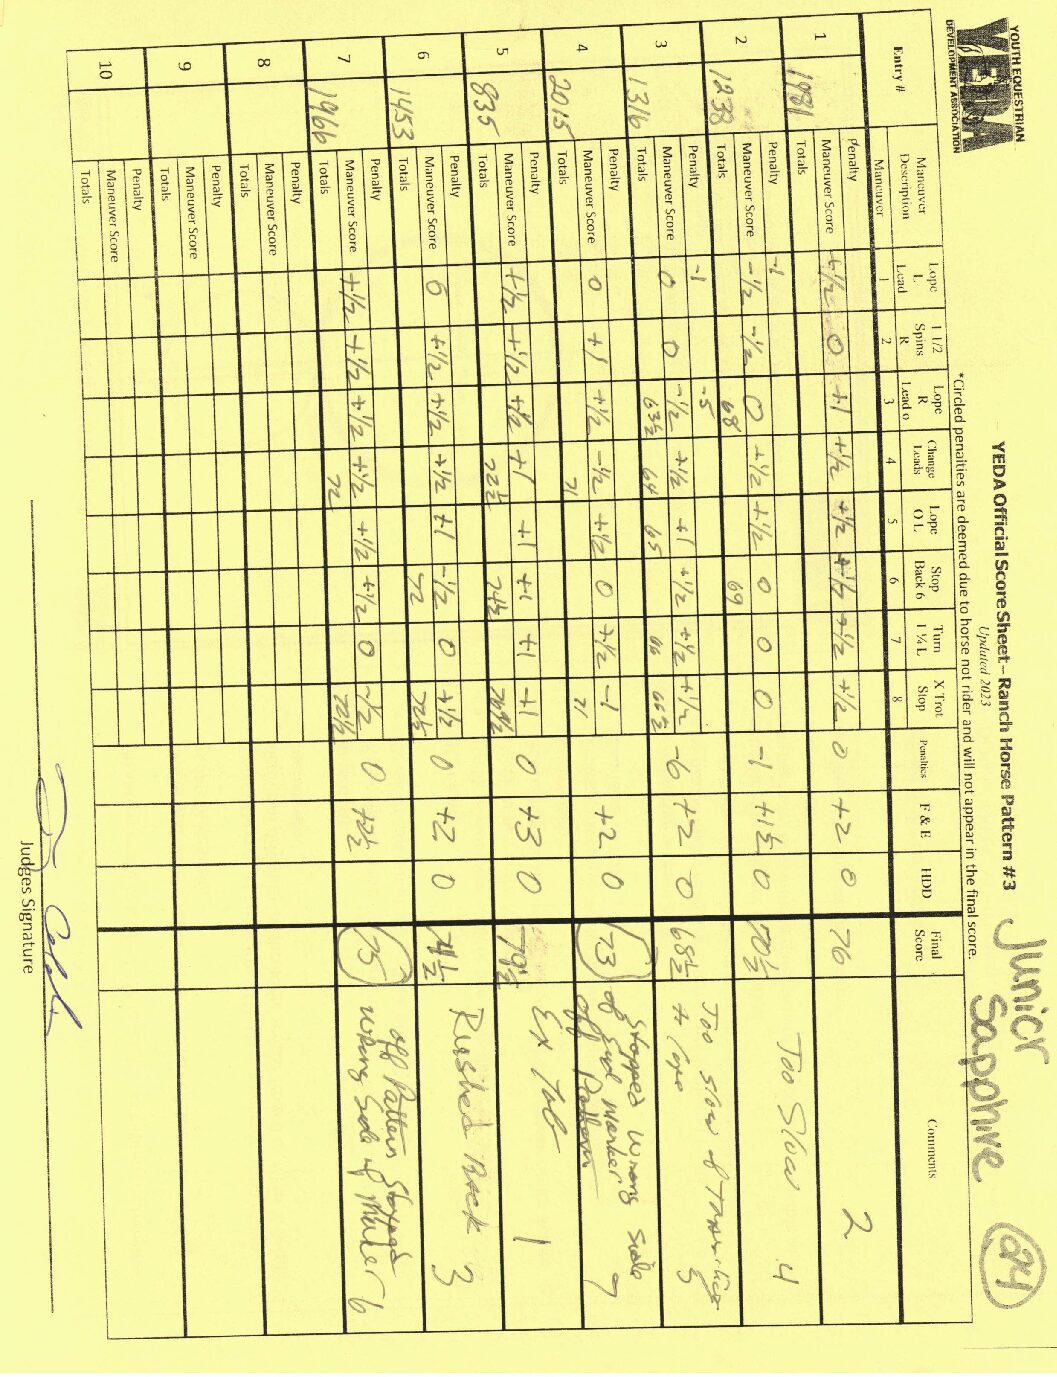 YOUTH EQUESTRIAN
YEDA
DEVELOPMENT ASSOCIATION
YEDA Official Score Sheet – Ranch Horse Pattern #3
Junior Sapphire
Updated 2023
*Circled penalties are deemed due to horse not rider and will not appear in the final score.
Entry # Maneuver Description Lope L Lead 1 1/2 Spins R Lope R Lead o Change Leads Lope O L Stop Back 6 Turn 1 ¼ L X Trot Stop Penalties F & E HDD Final Score Comments
Maneuver 1 2 3 4 5 6 7 8
1 1981 Penalty
Maneuver Score +½ 0 +1 +½ +½ +½ +½ +½ 0 +2 0 76 2
Totals
2 1238 Penalty -1
Maneuver Score -½ -½ 0 +½ +½ 0 0 0 -1 +1½ 0 70½ Too Slow 4
Totals 68 69
3 1316 Penalty -1 -5
Maneuver Score 0 0 -½ +½ +1 +½ +½ +½ -6 +2 0 68½ Too slow of Transition to lope 5
Totals 63½ 64 65 66 66½
4 2015 Penalty
Maneuver Score 0 +1 +½ -½ +½ 0 +½ -1 +2 0 73 Stopped wrong side of End Marker off Pattern 7
Totals 71 71
5 835 Penalty
Maneuver Score +½ +½ +½ +1 +1 +1 +1 +1 0 +3 0 79½ 1
Totals 72½ 74½ 76½
6 1453 Penalty
Maneuver Score 0 +½ +½ +½ +1 -½ 0 +½ 0 +2 0 74½ Rushed Back 3
Totals 72 72½
7 1966 Penalty
Maneuver Score +½ +½ +½ +½ +½ +½ 0 -½ 0 +2½ 75 off Pattern Stopped wrong side of Marker 6
Totals 72 72½
8 Penalty
Maneuver Score
Totals
9 Penalty
Maneuver Score
Totals
10 Penalty
Maneuver Score
Totals
Judges Signature